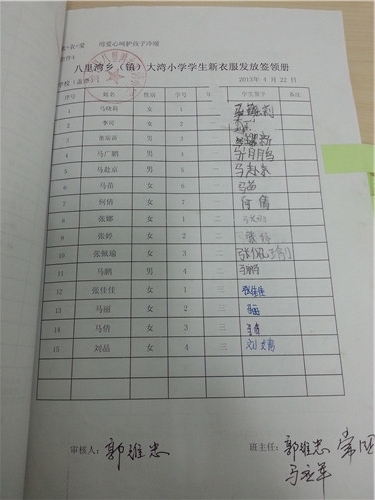 用爱心呵护孩子冷暖
八里湾乡（镇）大湾小学学生新衣服发放签领册
学校（盖章） 2013年 4月 22日
序号 姓名 性别 学号 年 学生签字 备注
1 马晓莉 女 1 一 马晓莉
2 李可 女 2 一 李可
3 女 3 一
4 马广鹏 男 4 一 马广鹏
5 马赴京 男 5 一 马赴京
6 马苗 女 6 一 马苗
7 何倩 女 7 一 何倩
8 张娜 女 1 二
9 张婷 女 2 二 张婷
10 张佩瑜 女 3 二 张佩瑜
11 马鹏 男 4 二 马鹏
12 张佳佳 女 1 三 张佳佳
13 马丽 女 2 三 马丽
14 马倩 女 3 三 马倩
15 刘晶 女 4 三 刘晶
审核人： 郭维忠 班主任： 郭维忠 常旺